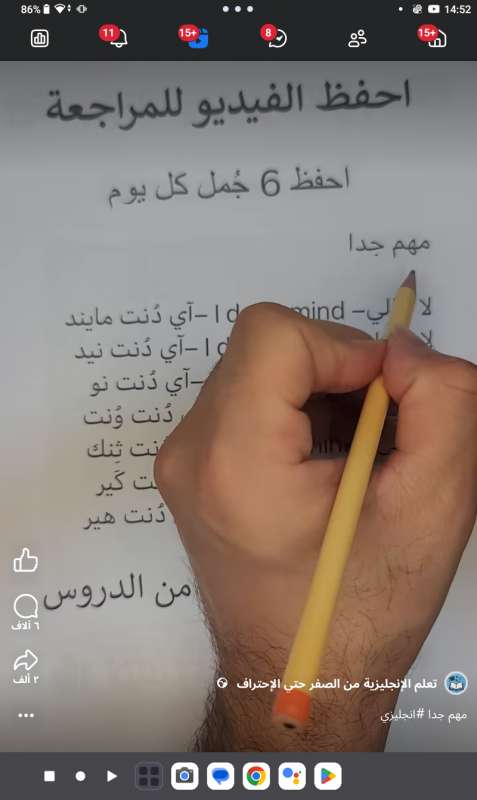 86%
14:52
11
15+
8
15+
احفظ الفيديو للمراجعة
احفظ 6 جُمل كل يوم
مهم جدا
لا – I d mind –آي دُنت مايند
–آي دُنت نيد
–آي دُنت نو
دُنت وُنت
ثِنك
كَير
دُنت هير
من الدروس
٦ آلاف
٢ ألف
تعلم الإنجليزية من الصفر حتي الإحتراف
مهم جدا #انجليزي